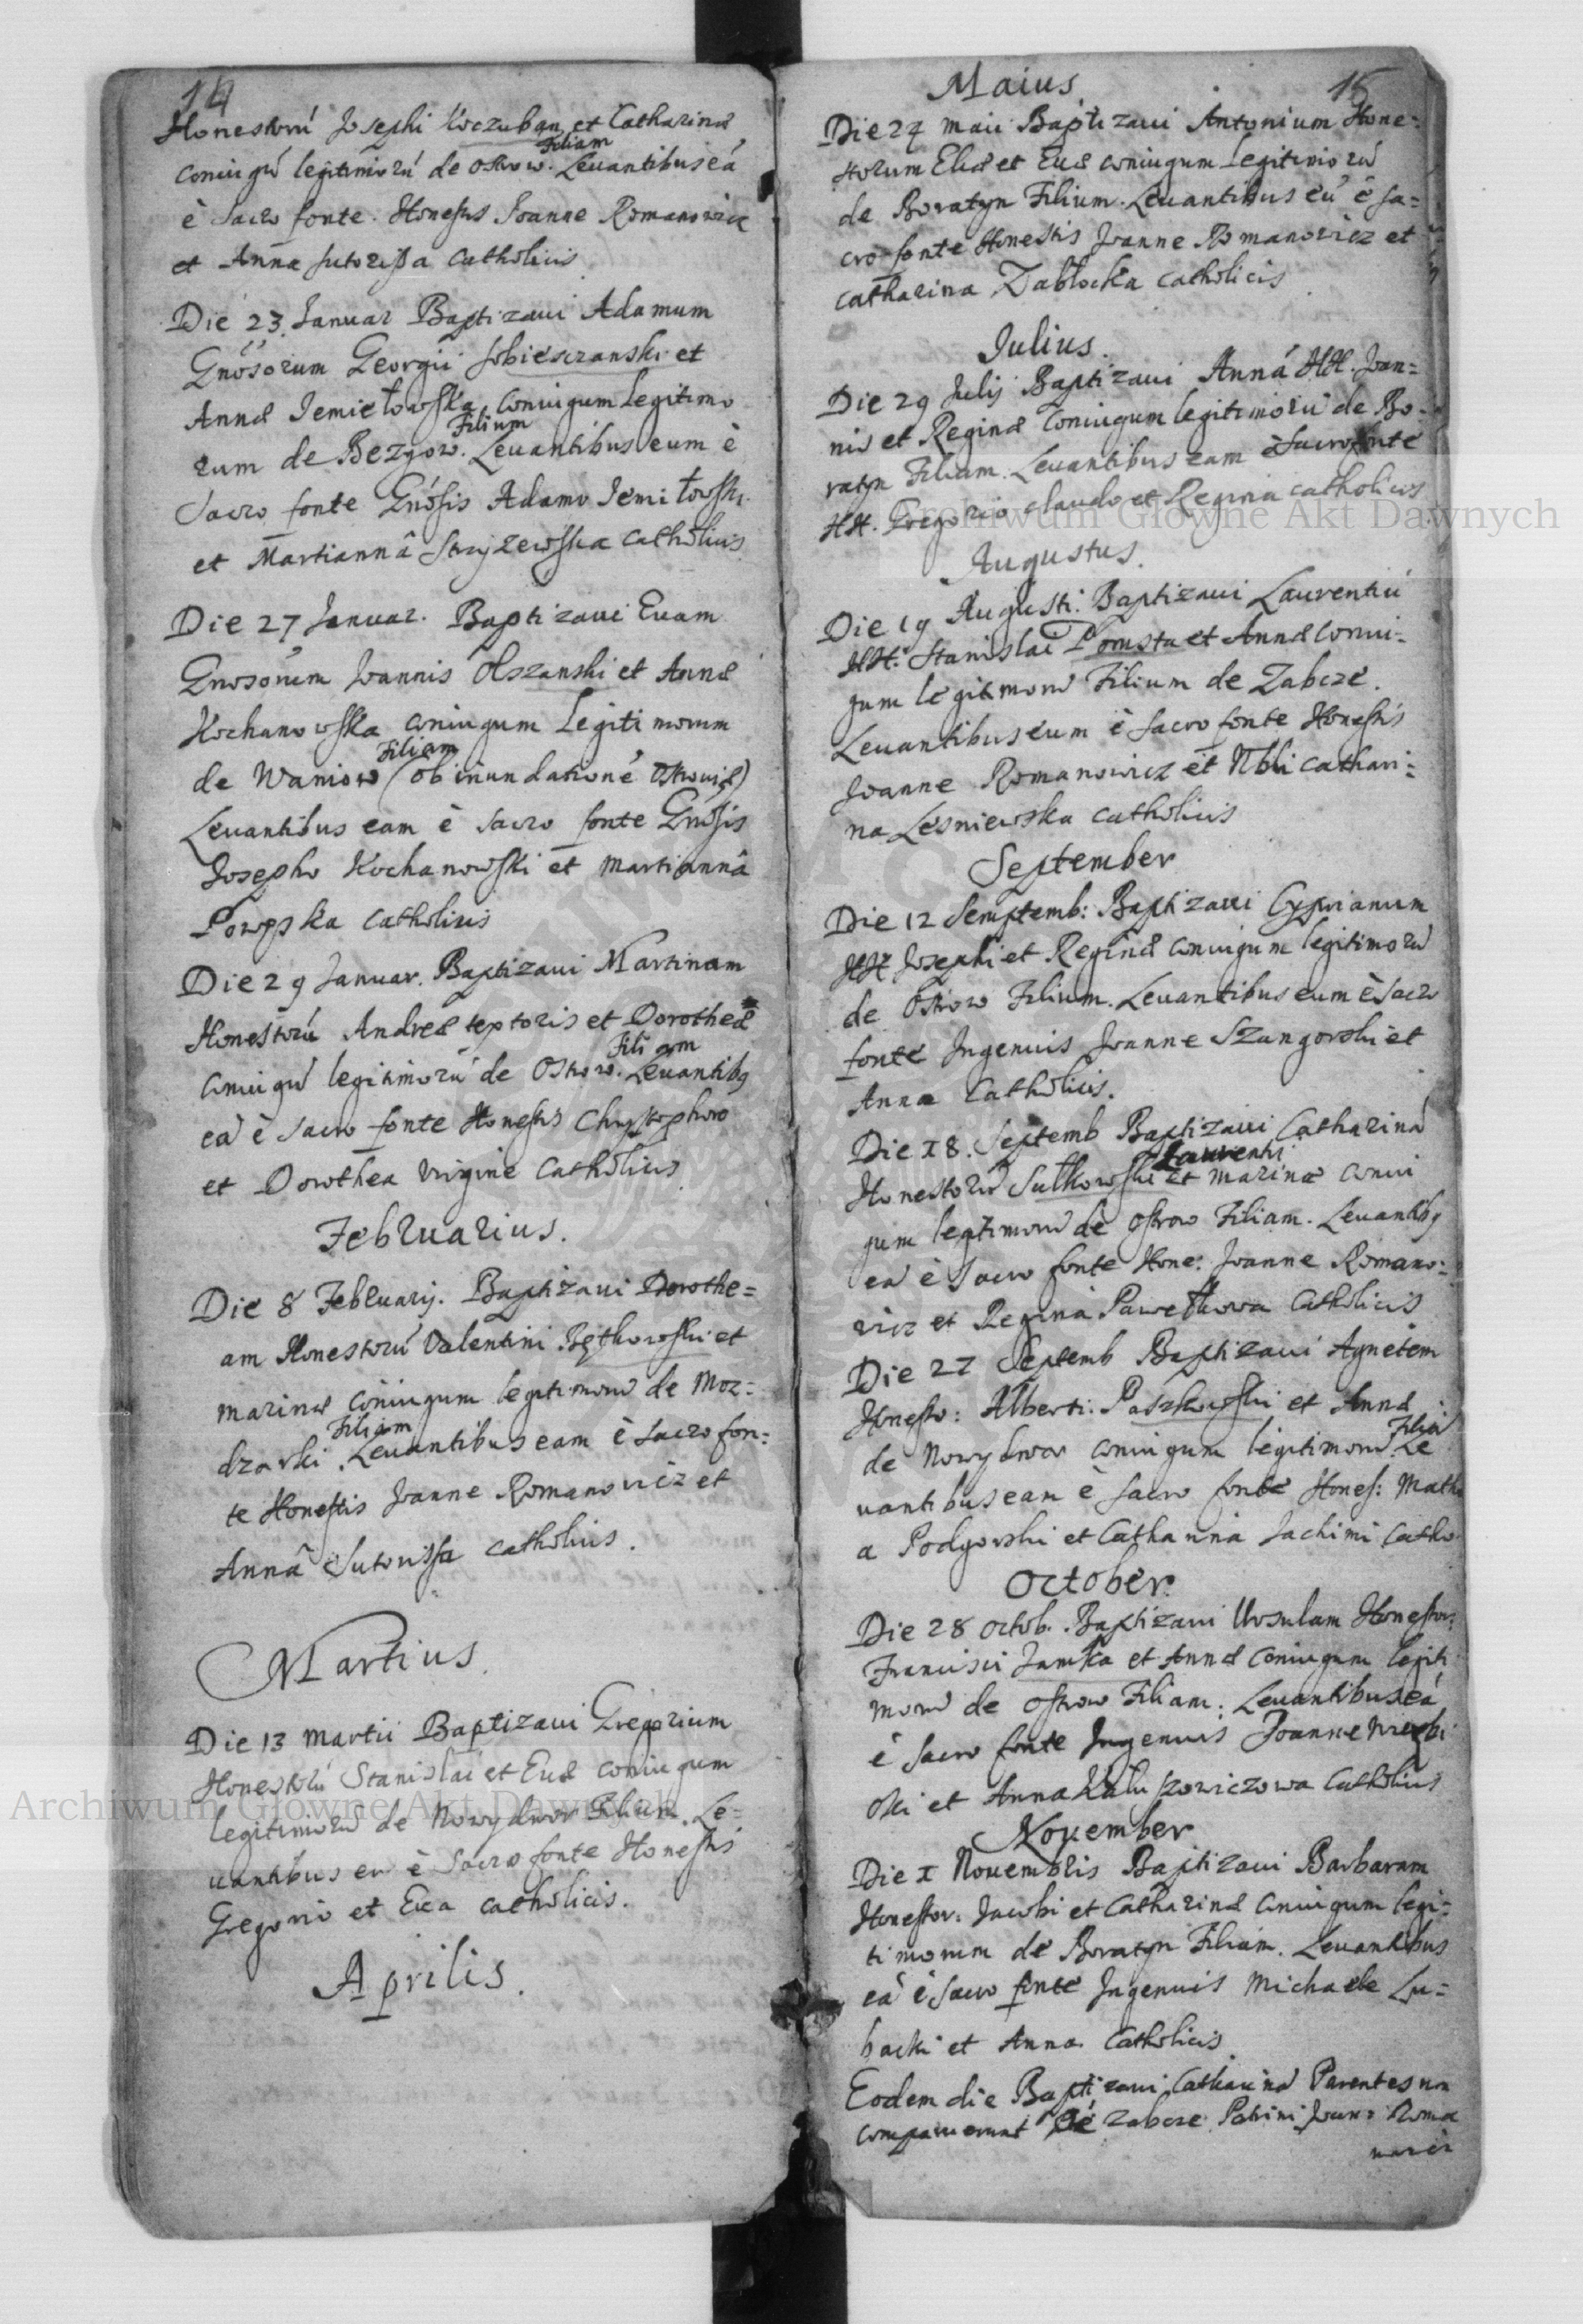 14
Honestorú Josephi Koczuban et Catharinæ
Filiam
coniugú legitimorú de Ostrow. Leuantibus eá
è sacro fonte Honestis Joanne Romanowicz
et Anna sutorissa catholicis
Die 23 Januar Baptizaui Adamum
Gnosorum Georgii Sobiesczanski et
Annæ Jemiełowska coniugum Legitimo
Filium
rum de Bezgow. Leuantibus eum è
Sacro fonte Gnosis Adamo Jemiłowski
et Martiannâ Stryzewska catholicis
Die 27 Januar. Baptizaui Euam
Gnosorum Joannis Olszanski et Annæ
Kochanowska coniugum Legitimorum
Filiam
de Waniow (ob inundationé Ostrouiæ)
Leuantibus eam è sacro fonte Gnosis
Josepho Kochanowski et Martiannâ
catholicis
Die 29 Januar. Baptizaui Martinam
Honestorú Andreæ textoris et Dorotheæ
Filiam
coniugú legitimorú de Ostrow. Leuantibq
eá è sacro fonte Honestis Chrystophoro
et Dorothea virgine catholicis
Februarius.
Die 8 Februarij. Baptizaui Dorothe=
am Honestorú Valentini Bętkowski et
Marinæ coniugum legitimorú de Moz=
Filiam
dzarki. Leuantibus eam è sacro fon=
te Honestis Joanne Romanovicz et
Annâ Sutorissa catholicis.
Martius.
Die 13 Martii Baptizaui Gregorium
Honestorú Stanislai et Euæ coniugum
legitimorú de Nowydwor Filium. Le=
uantibus eu è sacro fonte Honestis
Gregorio et Eva catholicis.
Aprilis.
15
Maius
Die 24 Maii Baptizaui Antonium Hone=
storum Eliæ et Euæ coniugum Legitimorú
de Boratyn Filium. Leuantibus eú è sa=
cro fonte Honestis Joanne Romanovicz et
catharina Zabłocka catholicis
Julius.
Die 29 Julij Baptizaui Anná HH. Joan=
nis et Reginæ coniugum legitimorú de Bo=
ratyn Filiam. Leuantibus eam è sacro fonte
HH. Gregorio claudo et Regina catholicis
Augustus.
Die 19 Augusti. Baptizaui Laurentiú
HH. Stanislai Pomsta et Annæ coniu=
gum legitimorú Filium de Zabcze.
Leuantibus eum è sacro fonte Honestis
Joanne Romanowicz et Nbli cathari=
na Lesniewska catholicis
September
Die 12 Semptemb: Baptizaui Cyprianum
HH Josephi et Reginæ coniugum legitimorú
de Ostrow Filium. Leuantibus eum è sacro
fonte Ingenuis Joanne Szangorski et
Anna catholicis.
Die 18. Septemb Baptizaui Cathariná
Laurenti
Honestorú Sułkowski et Marinæ coniu
gum legitimorú de Ostrow Filiam. Leuantibq
eá è sacro fonte Hone: Joanne Romano=
vicz et Regina Pawełkowa Catholicis
Die 27 Septemb Baptizaui Agnetem
Honesto: Alberti Paszkowski et Annæ
Filiá
de Nowydwor coniugum legitimorú Le
uantibus eam è sacro fonte Hones: Math
a Podgorski et Catharina Jachimi Catho
October
Die 28 octob. Baptizaui Ursulam Honestor:
Francisci Jamka et Annæ coniugum legiti
morú de Ostrow Filiam: Leuantibus eá
è sacro fonte Ingenuis Joanne
ski et Anna catholicis
Nouember
Die 1 Nouembris Baptizaui Barbaram
Honestor: Jacobi et Catharinæ coniugum legi=
timorum de Boratyn Filiam. Leuantibus
eá è sacro fonte Ingenuis Michaele Lu=
backi et Anna Catholicis
Eodem die Baptizaui Catharinâ Parentes non
comparuerunt De Zabcze Patrini Joan: Roma
novicz
Archiwum Główne Akt Dawnych
Archiwum Główne Akt Dawnych